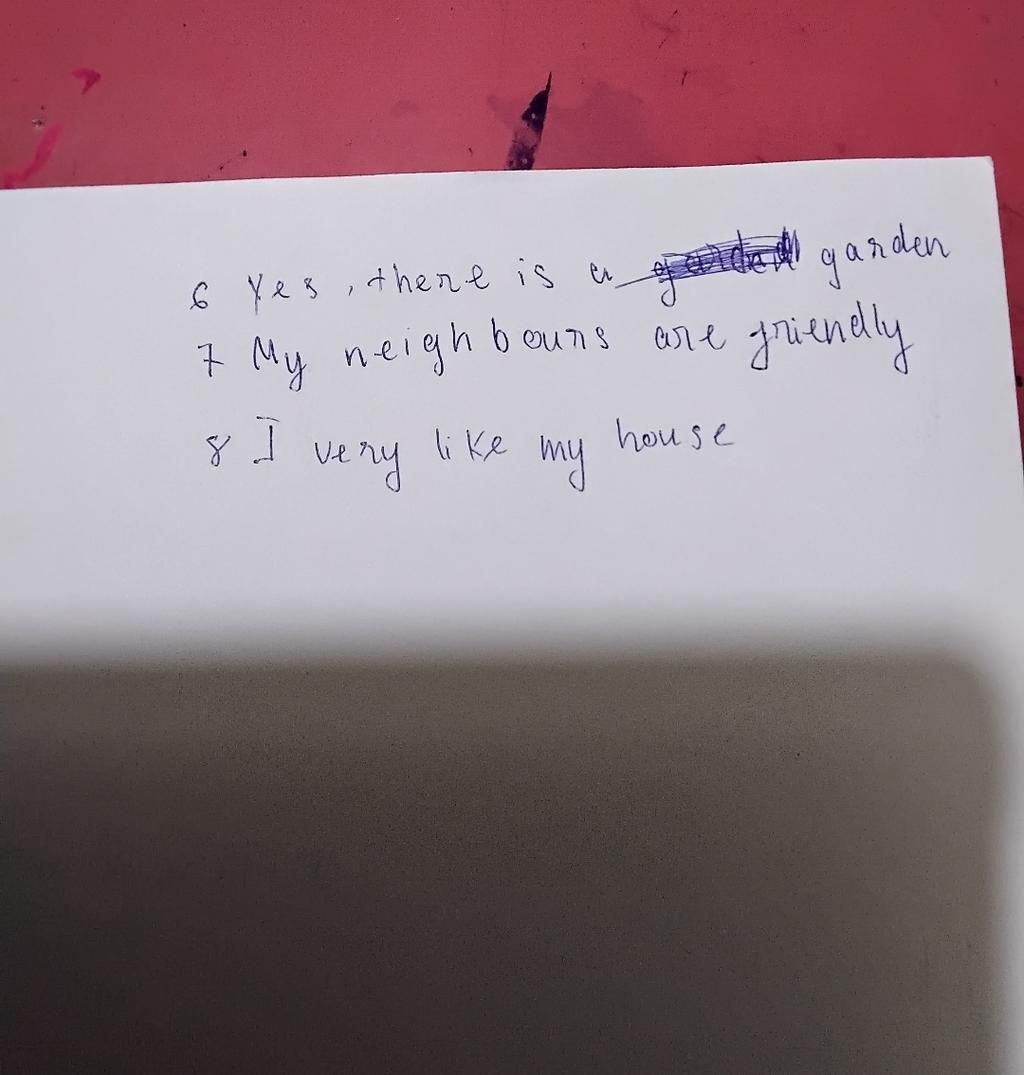 6 Yes, there is a garden
7 My neighbours are friendly
8 I very like my house